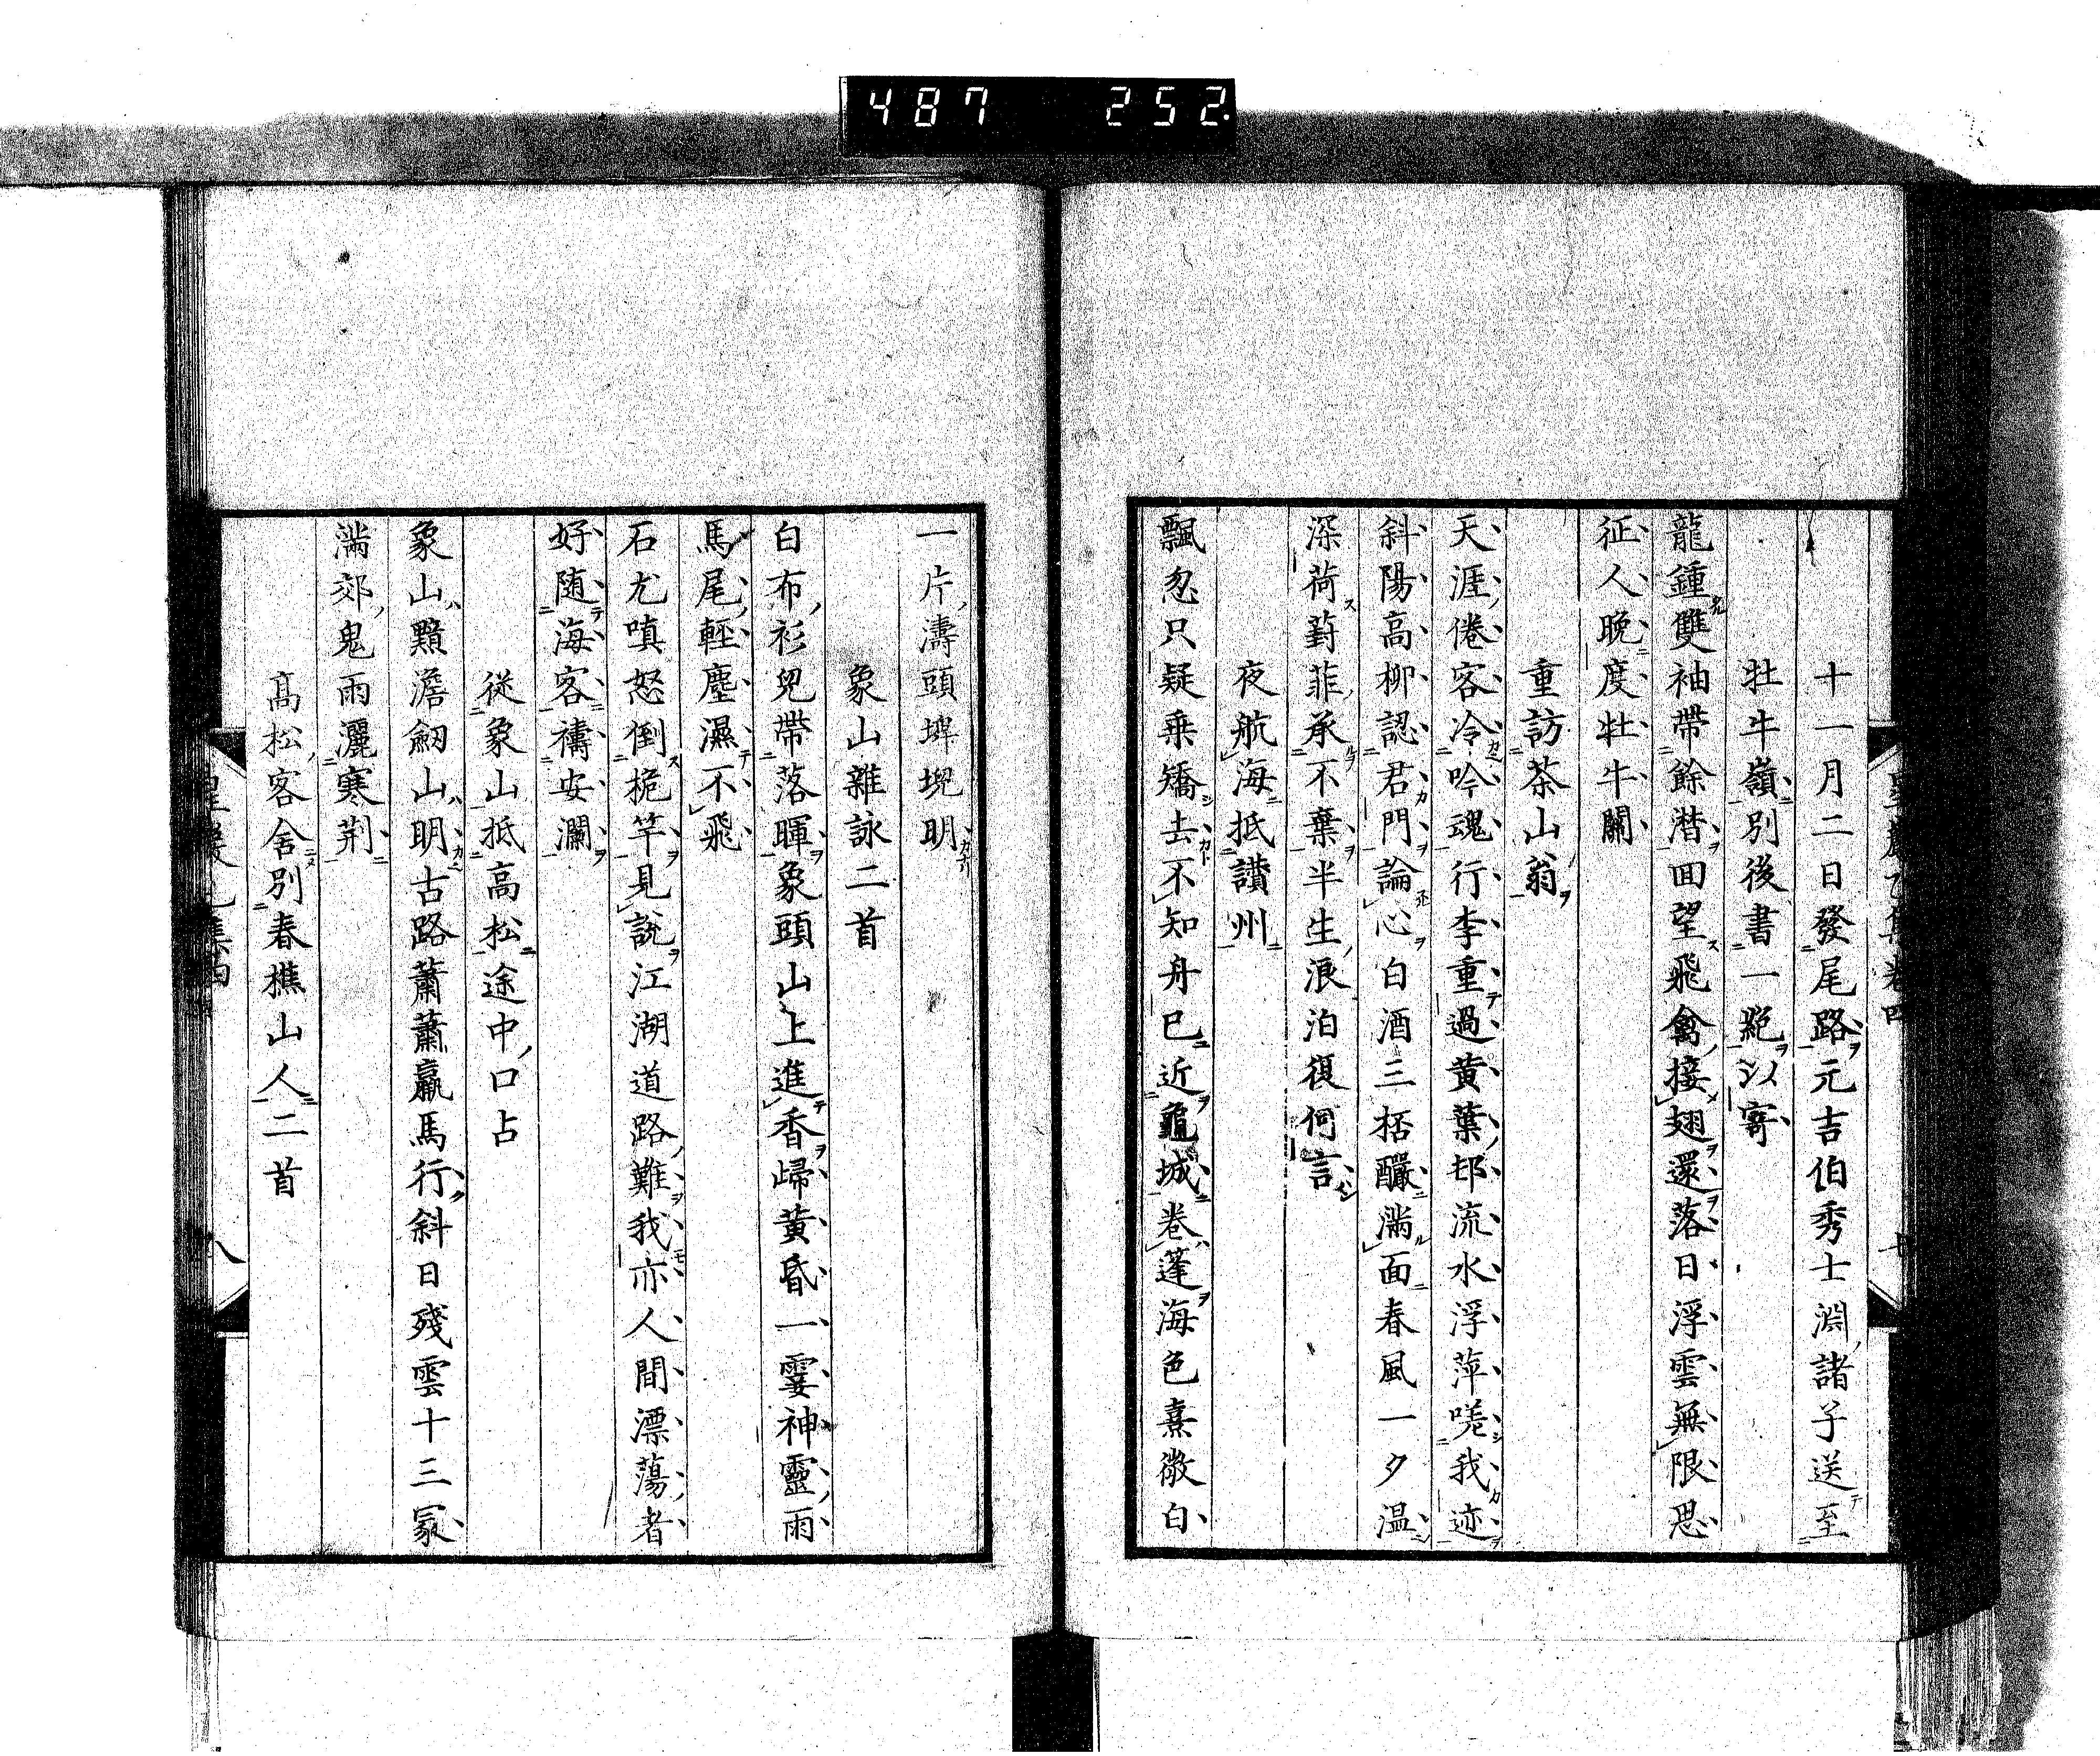 487 252
十一月二日發尾路元吉伯秀士淵諸子送至
牡牛嶺別後書一絶以寄
龍鍾雙袖帶餘潸回望飛禽接翅還落日浮雲無限思
征人晚度牡牛關
重訪茶山翁
天涯倦客冷吟魂行李重過黄葉邨流水浮萍嗟我迹
斜陽高柳認君門論心白酒三桮釅滿面春風一夕温
深荷葑菲承不棄半生浪泊復何言
夜航海抵讃州
飄忽只疑乗矯去不知舟已近龜城卷篷海色熹微白
一片濤頭埤堄明
象山雜詠二首
白布衫兒帶落暉象頭山上進香歸黄昏一霎神靈雨
馬尾輕塵濕不飛
石尤嗔怒倒桅竿見説江湖道路難我亦人間漂蕩者
好随海客禱安瀾
從象山抵高松途中口占
象山黯澹劒山明古路蕭蕭羸馬行斜日殘雲十三冢
滿郊鬼雨灑寒荆
高松客舍別春樵山人二首
八